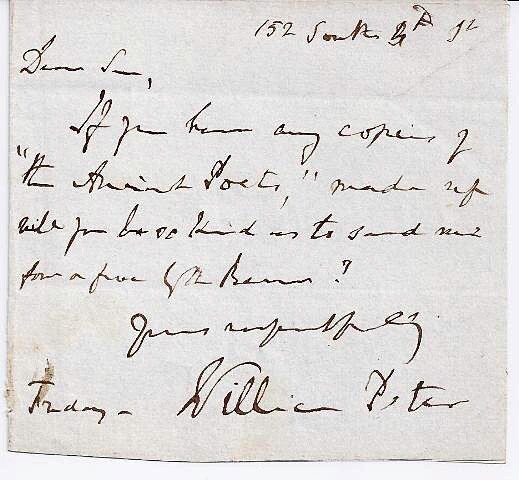 152 South 4th St
Dear Sir,
If you have any copies of
"the Ancient Poets," made up
will you be so kind as to send me
four or five by the Bearer?
Yours respectfully
Friday - William Peter